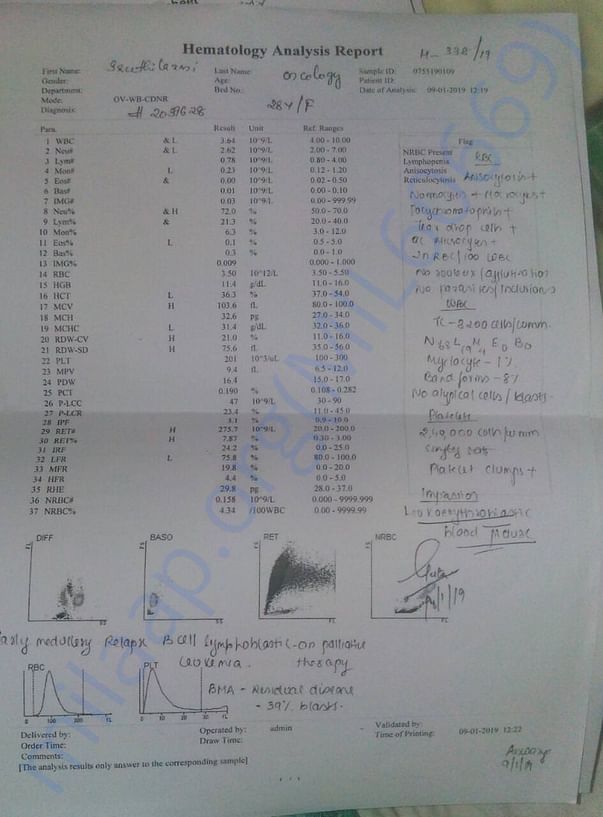 Hematology Analysis Report
H-398/19
First Name:
Last Name:
Sample ID: 0755190109
Gender:
Age: oncology
Patient ID:
Department:
Bed No.:
Date of Analysis: 09-01-2019 12:19
Mode: OV-WB-CDNR
28Y/F
Diagnosis:
Para. Result Unit Ref. Ranges
1 WBC & L 3.64 10^9/L 4.00 - 10.00
2 Neu# & L 2.62 10^9/L 2.00 - 7.00
3 Lym# 0.78 10^9/L 0.80 - 4.00
4 Mon# L 0.23 10^9/L 0.12 - 1.20
5 Eos# & 0.00 10^9/L 0.02 - 0.50
6 Bas# 0.01 10^9/L 0.00 - 0.10
7 IMG# 0.03 10^9/L 0.00 - 999.99
8 Neu% & H 72.0 % 50.0 - 70.0
9 Lym% & 21.3 % 20.0 - 40.0
10 Mon% 6.3 % 3.0 - 12.0
11 Eos% L 0.1 % 0.5 - 5.0
12 Bas% 0.3 % 0.0 - 1.0
13 IMG% 0.009 0.000 - 1.000
14 RBC 3.50 10^12/L 3.50 - 5.50
15 HGB 11.4 g/dL 11.0 - 16.0
16 HCT L 36.3 % 37.0 - 54.0
17 MCV H 103.6 fL 80.0 - 100.0
18 MCH 32.6 pg 27.0 - 34.0
19 MCHC L 31.4 g/dL 32.0 - 36.0
20 RDW-CV H 21.0 % 11.0 - 16.0
21 RDW-SD H 75.6 fL 35.0 - 56.0
22 PLT 201 10^3/uL 100 - 300
23 MPV 9.4 fL 6.5 - 12.0
24 PDW 16.4 15.0 - 17.0
25 PCT 0.190 % 0.108 - 0.282
26 P-LCC 47 10^9/L 30 - 90
27 P-LCR 23.4 % 11.0 - 45.0
28 IPF 3.1 % 0.9 - 10.0
29 RET# H 275.7 10^9/L 20.0 - 200.0
30 RET% H 7.87 % 0.30 - 3.00
31 IRF 24.2 % 0.0 - 25.0
32 LFR L 75.8 % 80.0 - 100.0
33 MFR 19.8 % 0.0 - 20.0
34 HFR 4.4 % 0.0 - 5.0
35 RHE 29.8 pg 28.0 - 37.0
36 NRBC# 0.158 10^9/L 0.000 - 9999.999
37 NRBC% 4.34 /100WBC 0.00 - 9999.99
Flag
NRBC Present RBC
Lymphopenia
Anisocytosis Anisocytosis+
Reticulocytosis
Normocytes + Macrocytes+
Polychromatophils+
Tear drop cells +
Microcytes +
NRBC/100 WBC
No parasites/inclusions
WBC
TC - 3200 cells/cumm
Myelocyte - 1%
Band forms - 8%
No atypical cells/blasts
Platelet
Platelet clumps +
Impression
Leukoerythroblastic
blood picture
DIFF BASO RET NRBC
FL SS
Early medullary Relapse B cell lymphoblastic - on palliative
Leukemia. therapy
RBC PLT
BMA - Residual disease
- 39% blasts.
0 100 200 fL 0 10 20 30 fL
Delivered by: Operated by: admin Validated by:
Order Time: Draw Time: Time of Printing: 09-01-2019 12:22
Comments:
[The analysis results only answer to the corresponding sample]
9/1/19